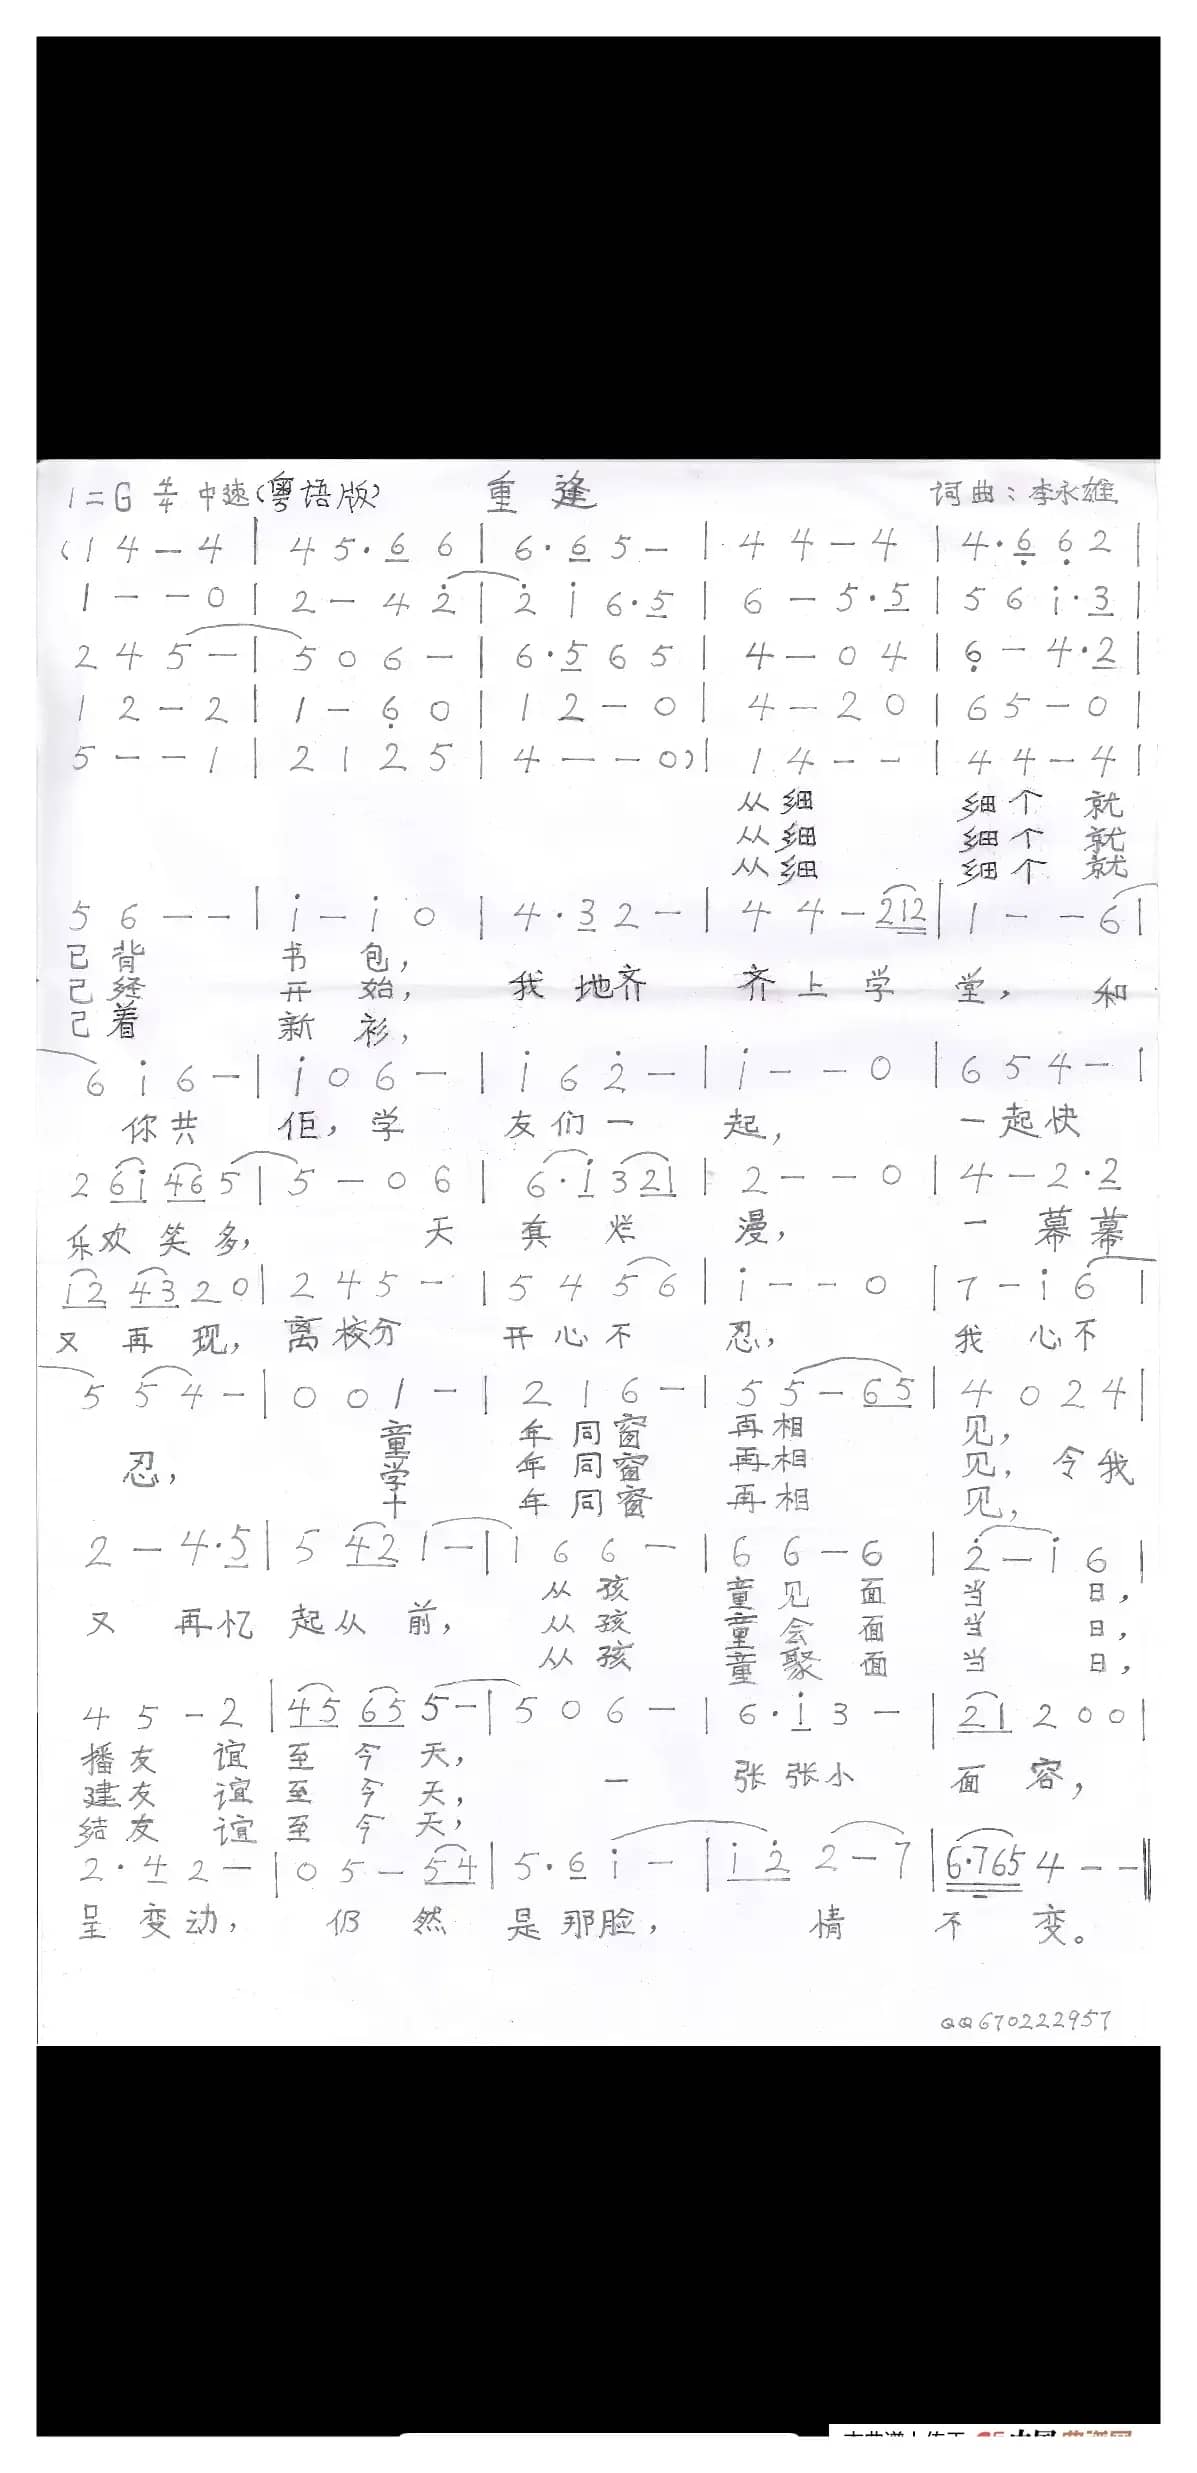 1=G 4/4 中速(粤语版) 重逢 词曲:李永雄
(1 4 — 4 | 4 5· 6 6 | 6· 6 5 — | 4 4 — 4 | 4· 6 6 2 |
1 — — 0 | 2 — 4 2 | 2 i 6·5 | 6 — 5·5 | 5 6 i·3 |
2 4 5 — | 5 0 6 — | 6·5 6 5 | 4 — 0 4 | 6 — 4·2 |
1 2 — 2 | 1 — 6 0 | 1 2 — 0 | 4 — 2 0 | 6 5 — 0 |
5 — — 1 | 2 1 2 5 | 4 — — 0) | 1 4 — — | 4 4 — 4 |
从细 细个 就
从细 细个 就
从细 细个 就
5 6 — — | i — i 0 | 4·3 2 — | 4 4 — 212 | 1 — — 6 |
已背 书包,
已经 开始, 我地齐 齐上学 堂, 和
已着 新衫,
6 i 6 — | i 0 6 — | i 6 2 — | i — — 0 | 6 5 4 — |
你共 佢,学 友们一 起, 一起快
2 6i 46 5 | 5 — 0 6 | 6·i 3 21 | 2 — — 0 | 4 — 2·2
乐欢笑多, 天 真烂 漫, 一幕幕
i2 43 2 0 | 2 4 5 — | 5 4 5 6 | i — — 0 | 7 — i 6 |
又再现, 离校分 开心不 忍, 我心不
5 5 4 — | 0 0 1 — | 2 1 6 — | 5 5 — 65 | 4 0 2 4 |
童 年同窗 再相 见,
忍, 学 年同窗 再相 见, 令我
十 年同窗 再相 见,
2 — 4·5 | 5 42 1 — | 1 6 6 — | 6 6 — 6 | 2 — i 6 |
从孩 童见面 当日,
又再忆 起从前, 从孩 童会面 当日,
从孩 童聚面 当日,
4 5 — 2 | 45 65 5 — | 5 0 6 — | 6·i 3 — | 21 2 0 0 |
播友谊 至今天,
建友谊 至今天, 一 张张小 面容,
结友谊 至今天,
2·4 2 — | 0 5 — 54 | 5·6 i — | i2 2 — 7 | 6·765 4 — — ‖
呈变动, 仍然 是那脸, 情 不变。
QQ670222957